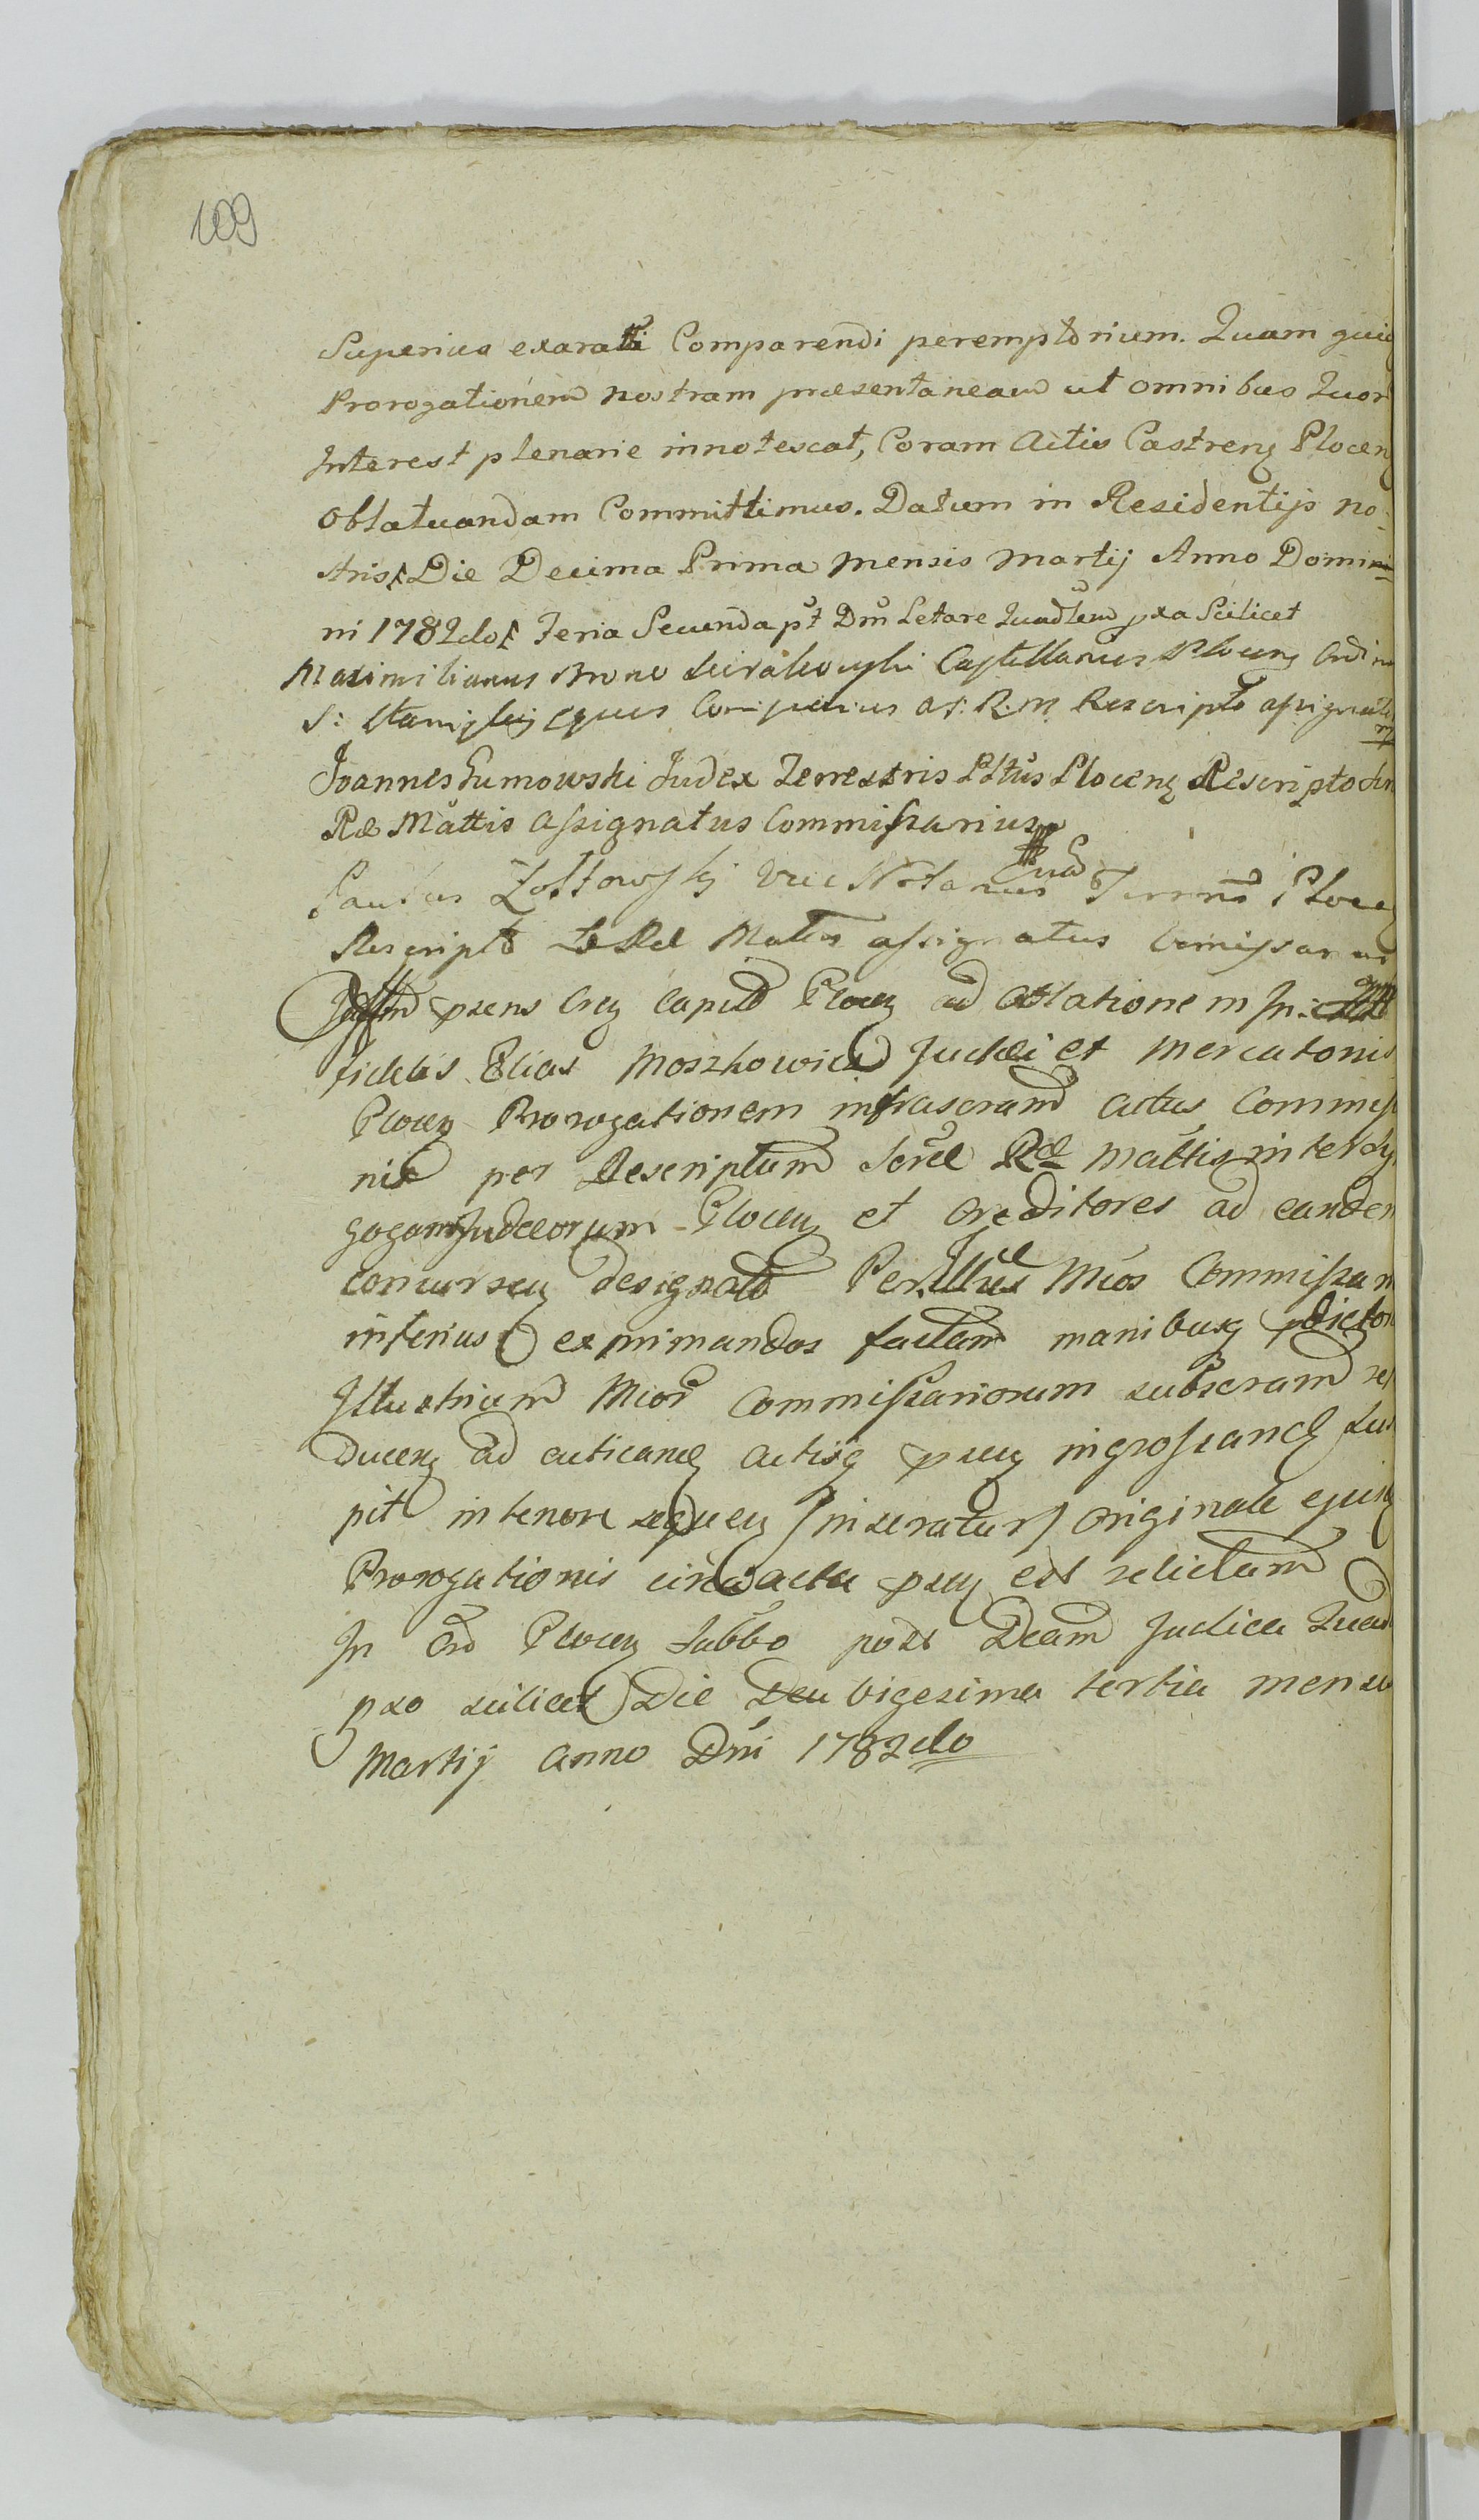 109
Superius exarati Comparendi peremptorium. Quam quid
Prorogationem nostram præsentaneam ut omnibus Quor
Interest plenarie innotescat, Coram Actis Castrenz Plocenz
Oblatuandam Committimus. Datum in Residentijs no:
stris, Die Decima Prima mensis Martij Anno Domini
ni 1782do Feria Secunda pt Dm Letare Quadlem pxa Scilicet
Maximilianus Castellanus Plocenz Ordinis
S: Stanislaij Eques a S. R. M. Rescripto assignatus
Joannes Gumowski Judex Terrestris Plttus Plocenz Rescripto
Ræ Mattis Assignatus Commissarius
Paulus Zołtowskj Vice Notarius Terrus Ploce
Rescripto Mattis assignatus Comissarius
psens Crez Capild Plocen ad Oblationem In:
fidelis Elias Moszkowicz Judei et Mercatoris
Plocen Prorogationem infrascram actus Commiss
nis per Rescriptum Sore Ræ Mattis inter Sy
gogam Judeorum Plocen et Creditores ad eandem
concursen designato Perillres Mcos Commissar
inferius exprimandos factam manibusq pdictor
Illustrium Mcor Commissariorum subscram re
ducenz ad acticand Actisq psen ingrossand sus
pit in tenore sequen /inseratur/ Originale ejusq
Prorogationis circa acta psen est relictum
In Crd Plocen Sabbo post Dcam Judica Quad
pxo scilicet Die vigesima tertia mensis
Martij Anno Dni 1782do